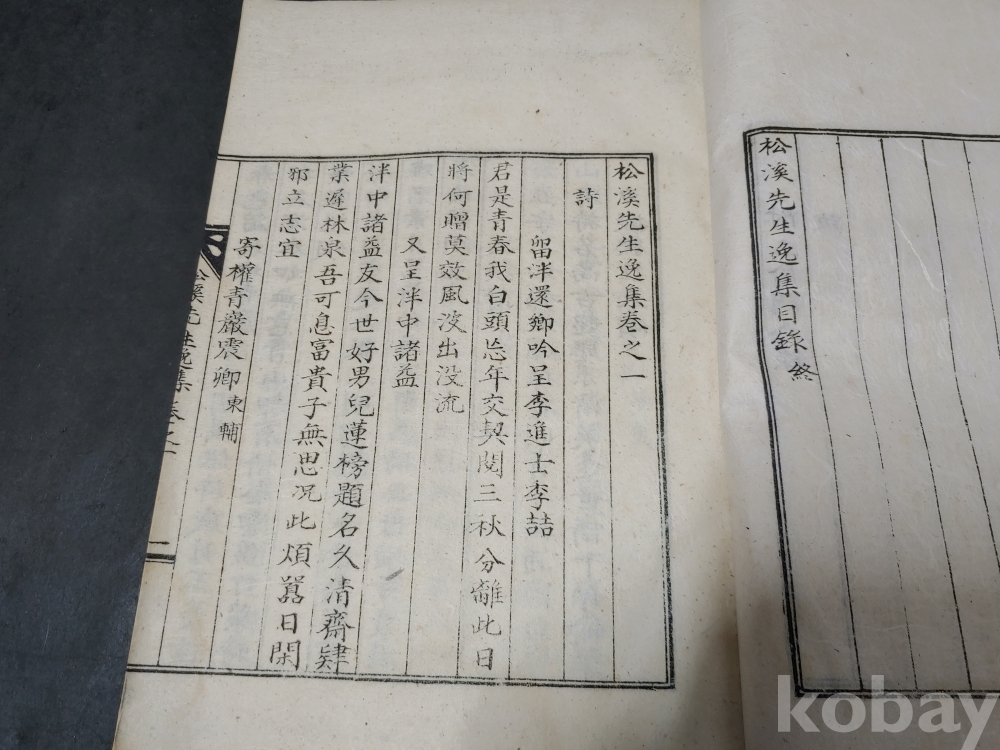 松溪先生逸集目錄終
松溪先生逸集卷之一
詩
留泮還鄉吟呈李進士李喆
君是青春我白頭忘年交契閱三秋分離此日
將何贈莫效風波出没流
又呈泮中諸益
泮中諸益友今世好男兒蓮榜題名久清齋肄
業遲林泉吾可息富貴子無思况此煩囂日閑
邪立志宜
寄權青巖震卿東輔
松溪先生逸集 卷之一
一
kobay